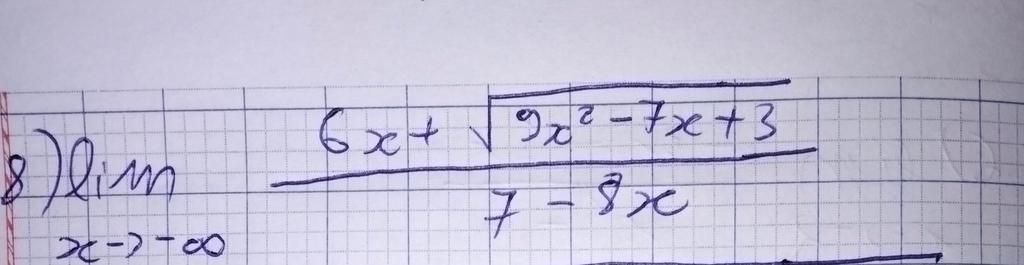 8) lim 6x + √(9x² - 7x + 3) / 7 - 8x
x -> -∞